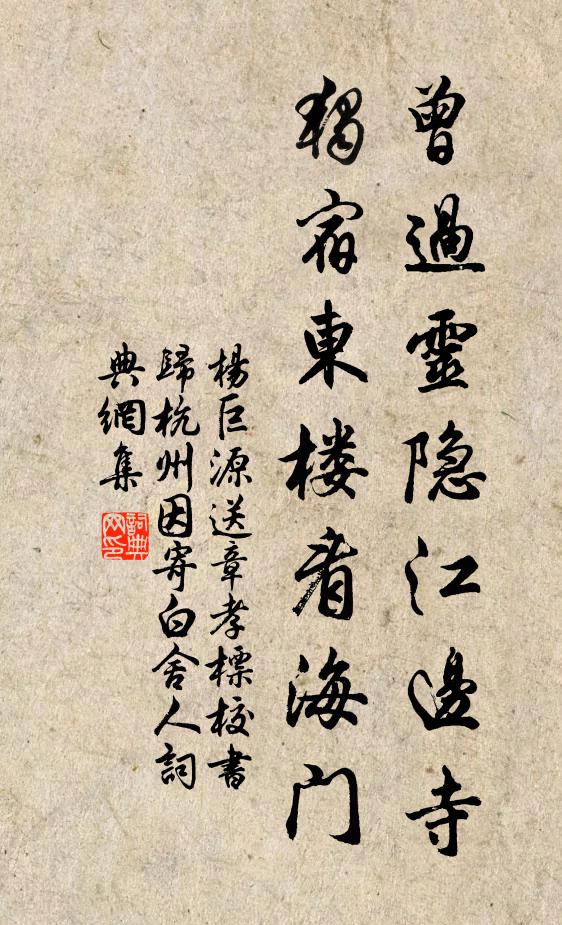 曾過靈隐江邊寺
獨宿東楼看海门
楊巨源送章孝標校書
歸杭州因寄白舍人詞
典網集
詞典网印